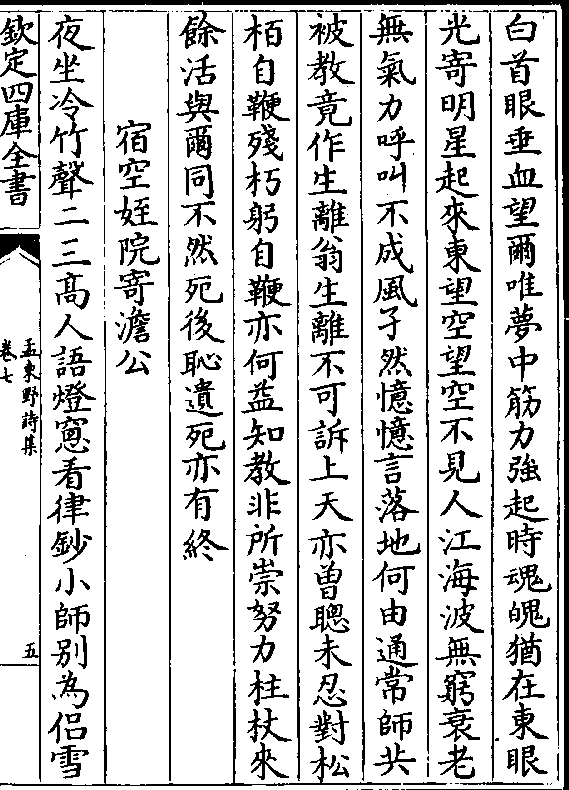 白首眼垂血望爾唯夢中筋力強起時魂魄猶在東眼
光寄明星起來東望空望空不見人江海波無窮衰老
無氣力呼叫不成風孑然憶憶言落地何由通常師共
被教竟作生離翁生離不可訴上天亦曽聰未忍對松
栢自鞭殘朽躬自鞭亦何益知教非所崇努力柱杖來
餘活與爾同不然死後恥遺死亦有終
宿空姪院寄澹公
夜坐冷竹聲二三髙人語燈窻看律鈔小師别為侣雪
欽定四庫全書
孟東野詩集
卷七
五